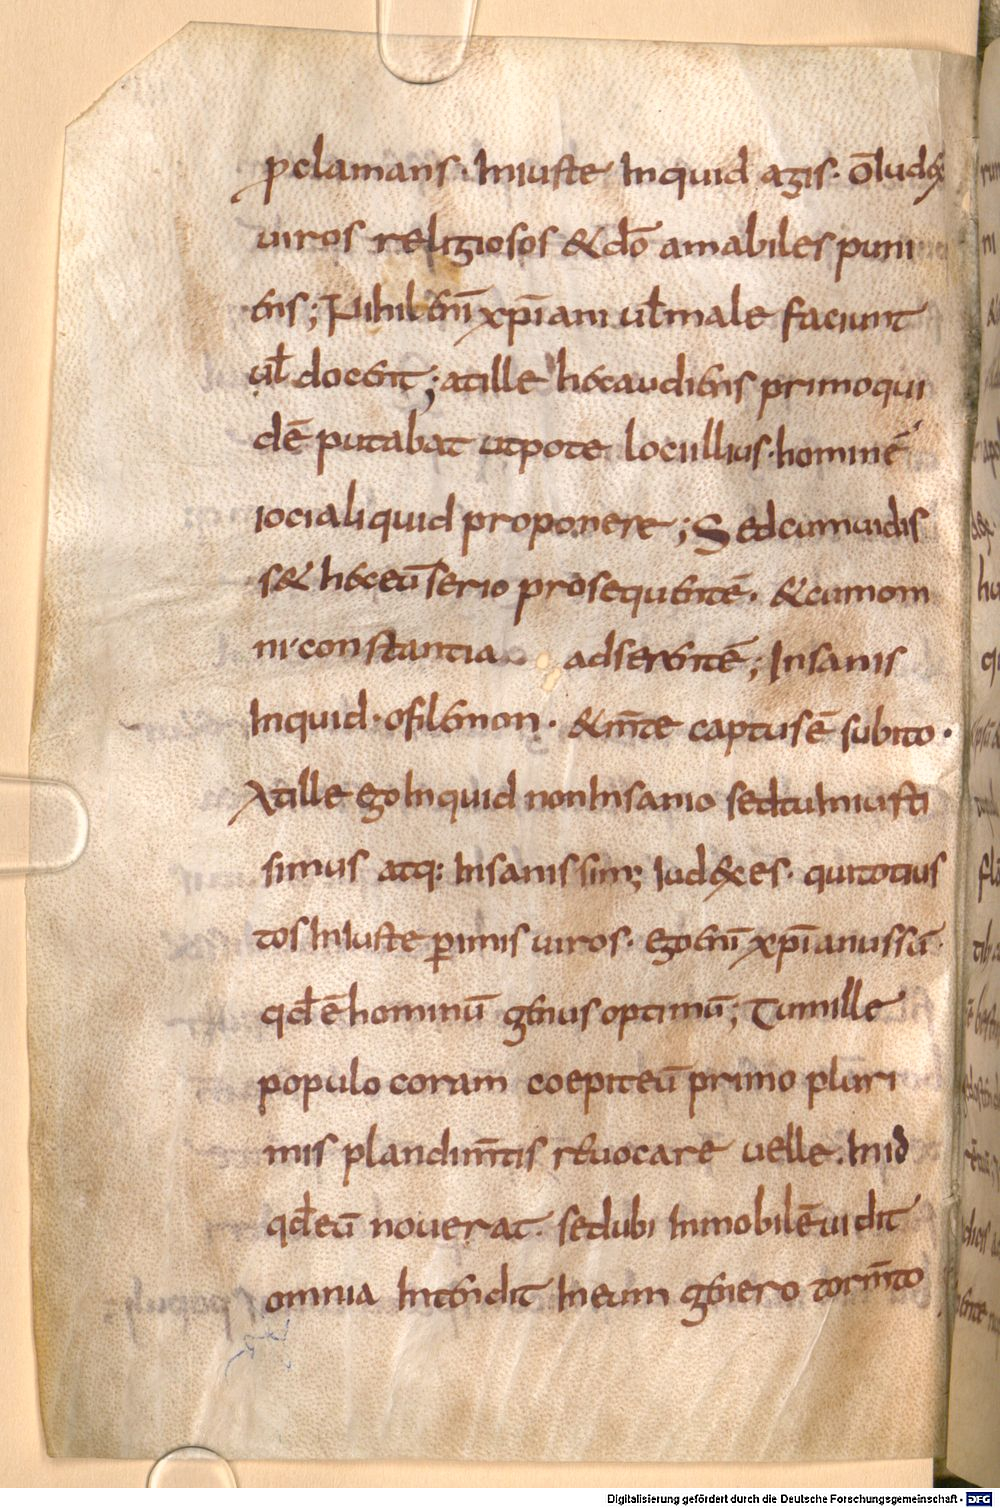 ꝓclamans · Iniuste Inquid agis · Ō Iudex
uiros religiosos & dō amabiles puni
ens ; Nihil enī xp̄iani ul̄ male faciunt
ul̄ docent ; at ille hęc audiens primo qui
dē putabat utpote locullius · hominē
ioci aliquid proponere ; Sed cum uidis
s& hęc eū serio prosequentē · & cum om
ni constantia adserentē ; Insanis
Inquid · o filemon · & m̄te captus ē subito ·
At ille ego Inquid non Insanio sed tu Iniusti
simus atq: Insanissim; Iudex es · qui totius
tos Iniuste ꝑimis uiros · ego enī xp̄ianus sū ·
qd̄ ē hominū genus optimū ; Tum ille
populo coram coepit eū primo pluri
mis plandim̄tis reuocare uelle . In id
qd̄ eū nouerat · sed ubi Inmobilē uidit
omnia Intendit In eum genero torm̄to
Digitalisierung gefördert durch die Deutsche Forschungsgemeinschaft - DFG